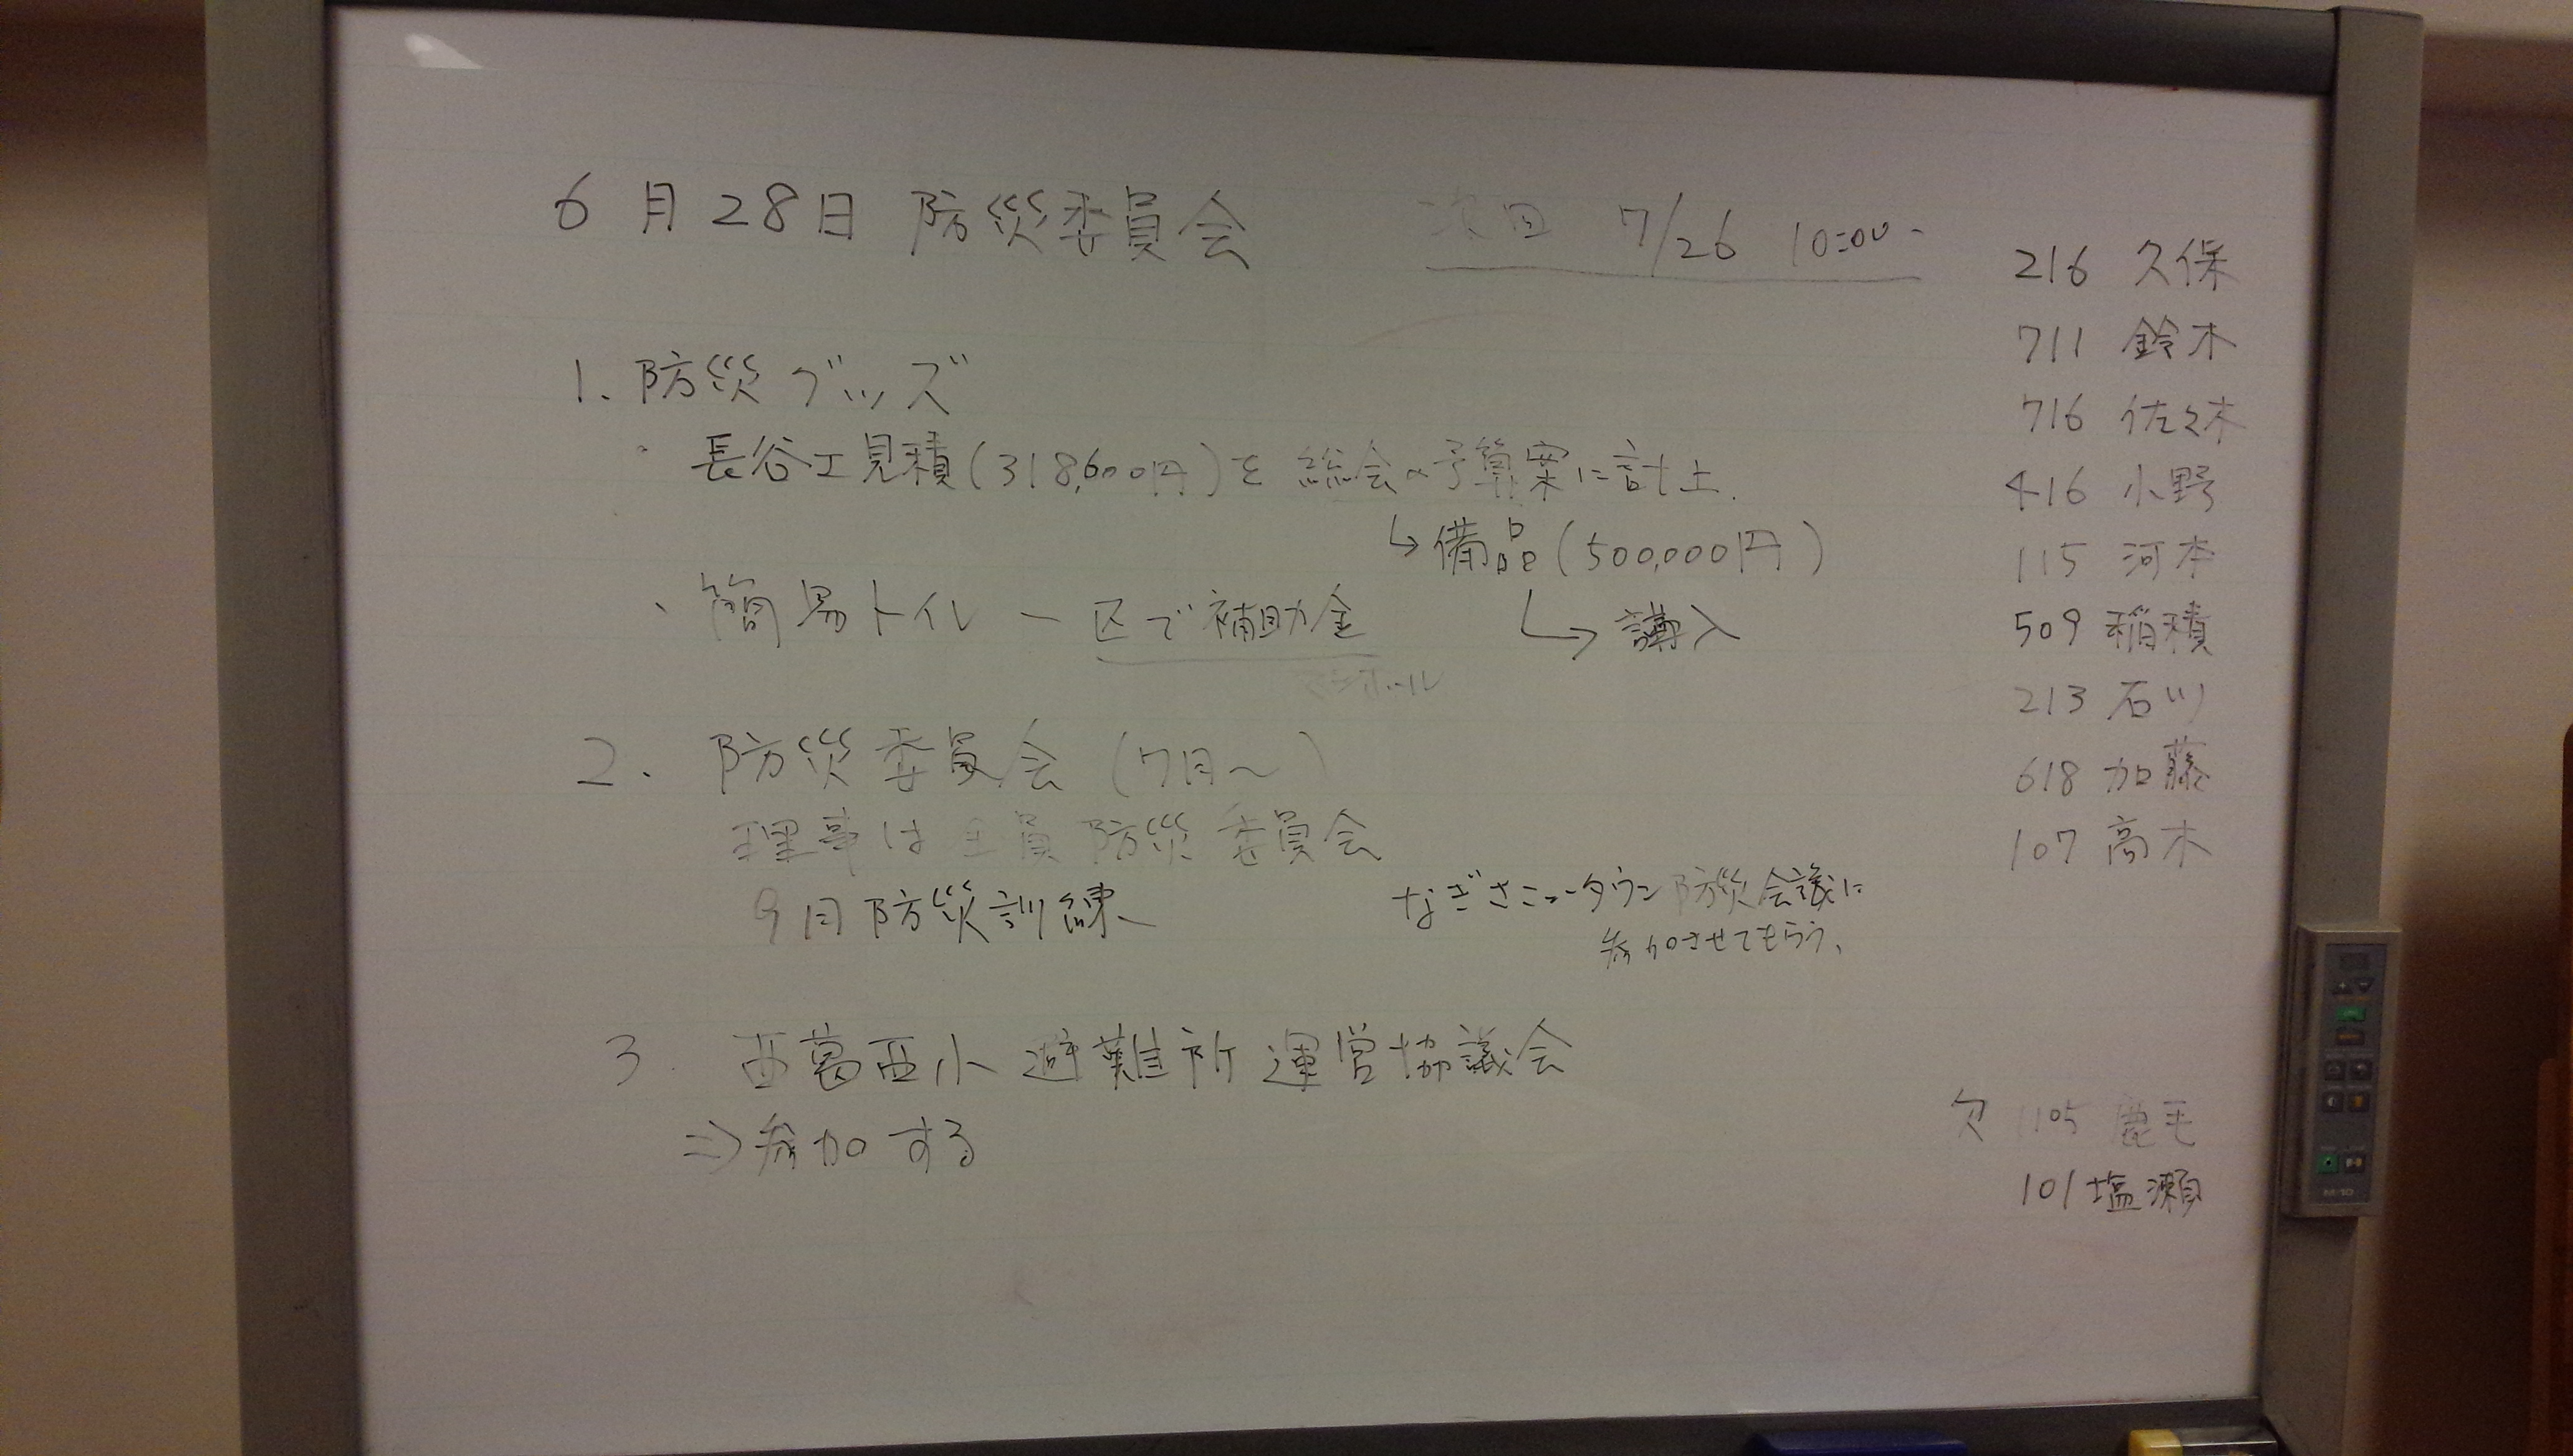 6月28日 防災委員会
次回 7/26 10:00-
1. 防災グッズ
・長谷工見積(318,600円)を総会の予算案に計上.
↳備品(500,000円)
↳講入
・簡易トイレ ー 区で補助金
2. 防災委員会 (7月〜)
理事は全員防災委員会
9月防災訓練
なぎさニュータウン防災会議に
参加させてもらう、
3. 西葛西小避難所運営協議会
⇒参加する
216 久保
711 鈴木
716 佐々木
416 小野
115 河本
509 稲積
213 石川
618 加藤
107 高木
欠 1105 鹿毛
101 塩瀬